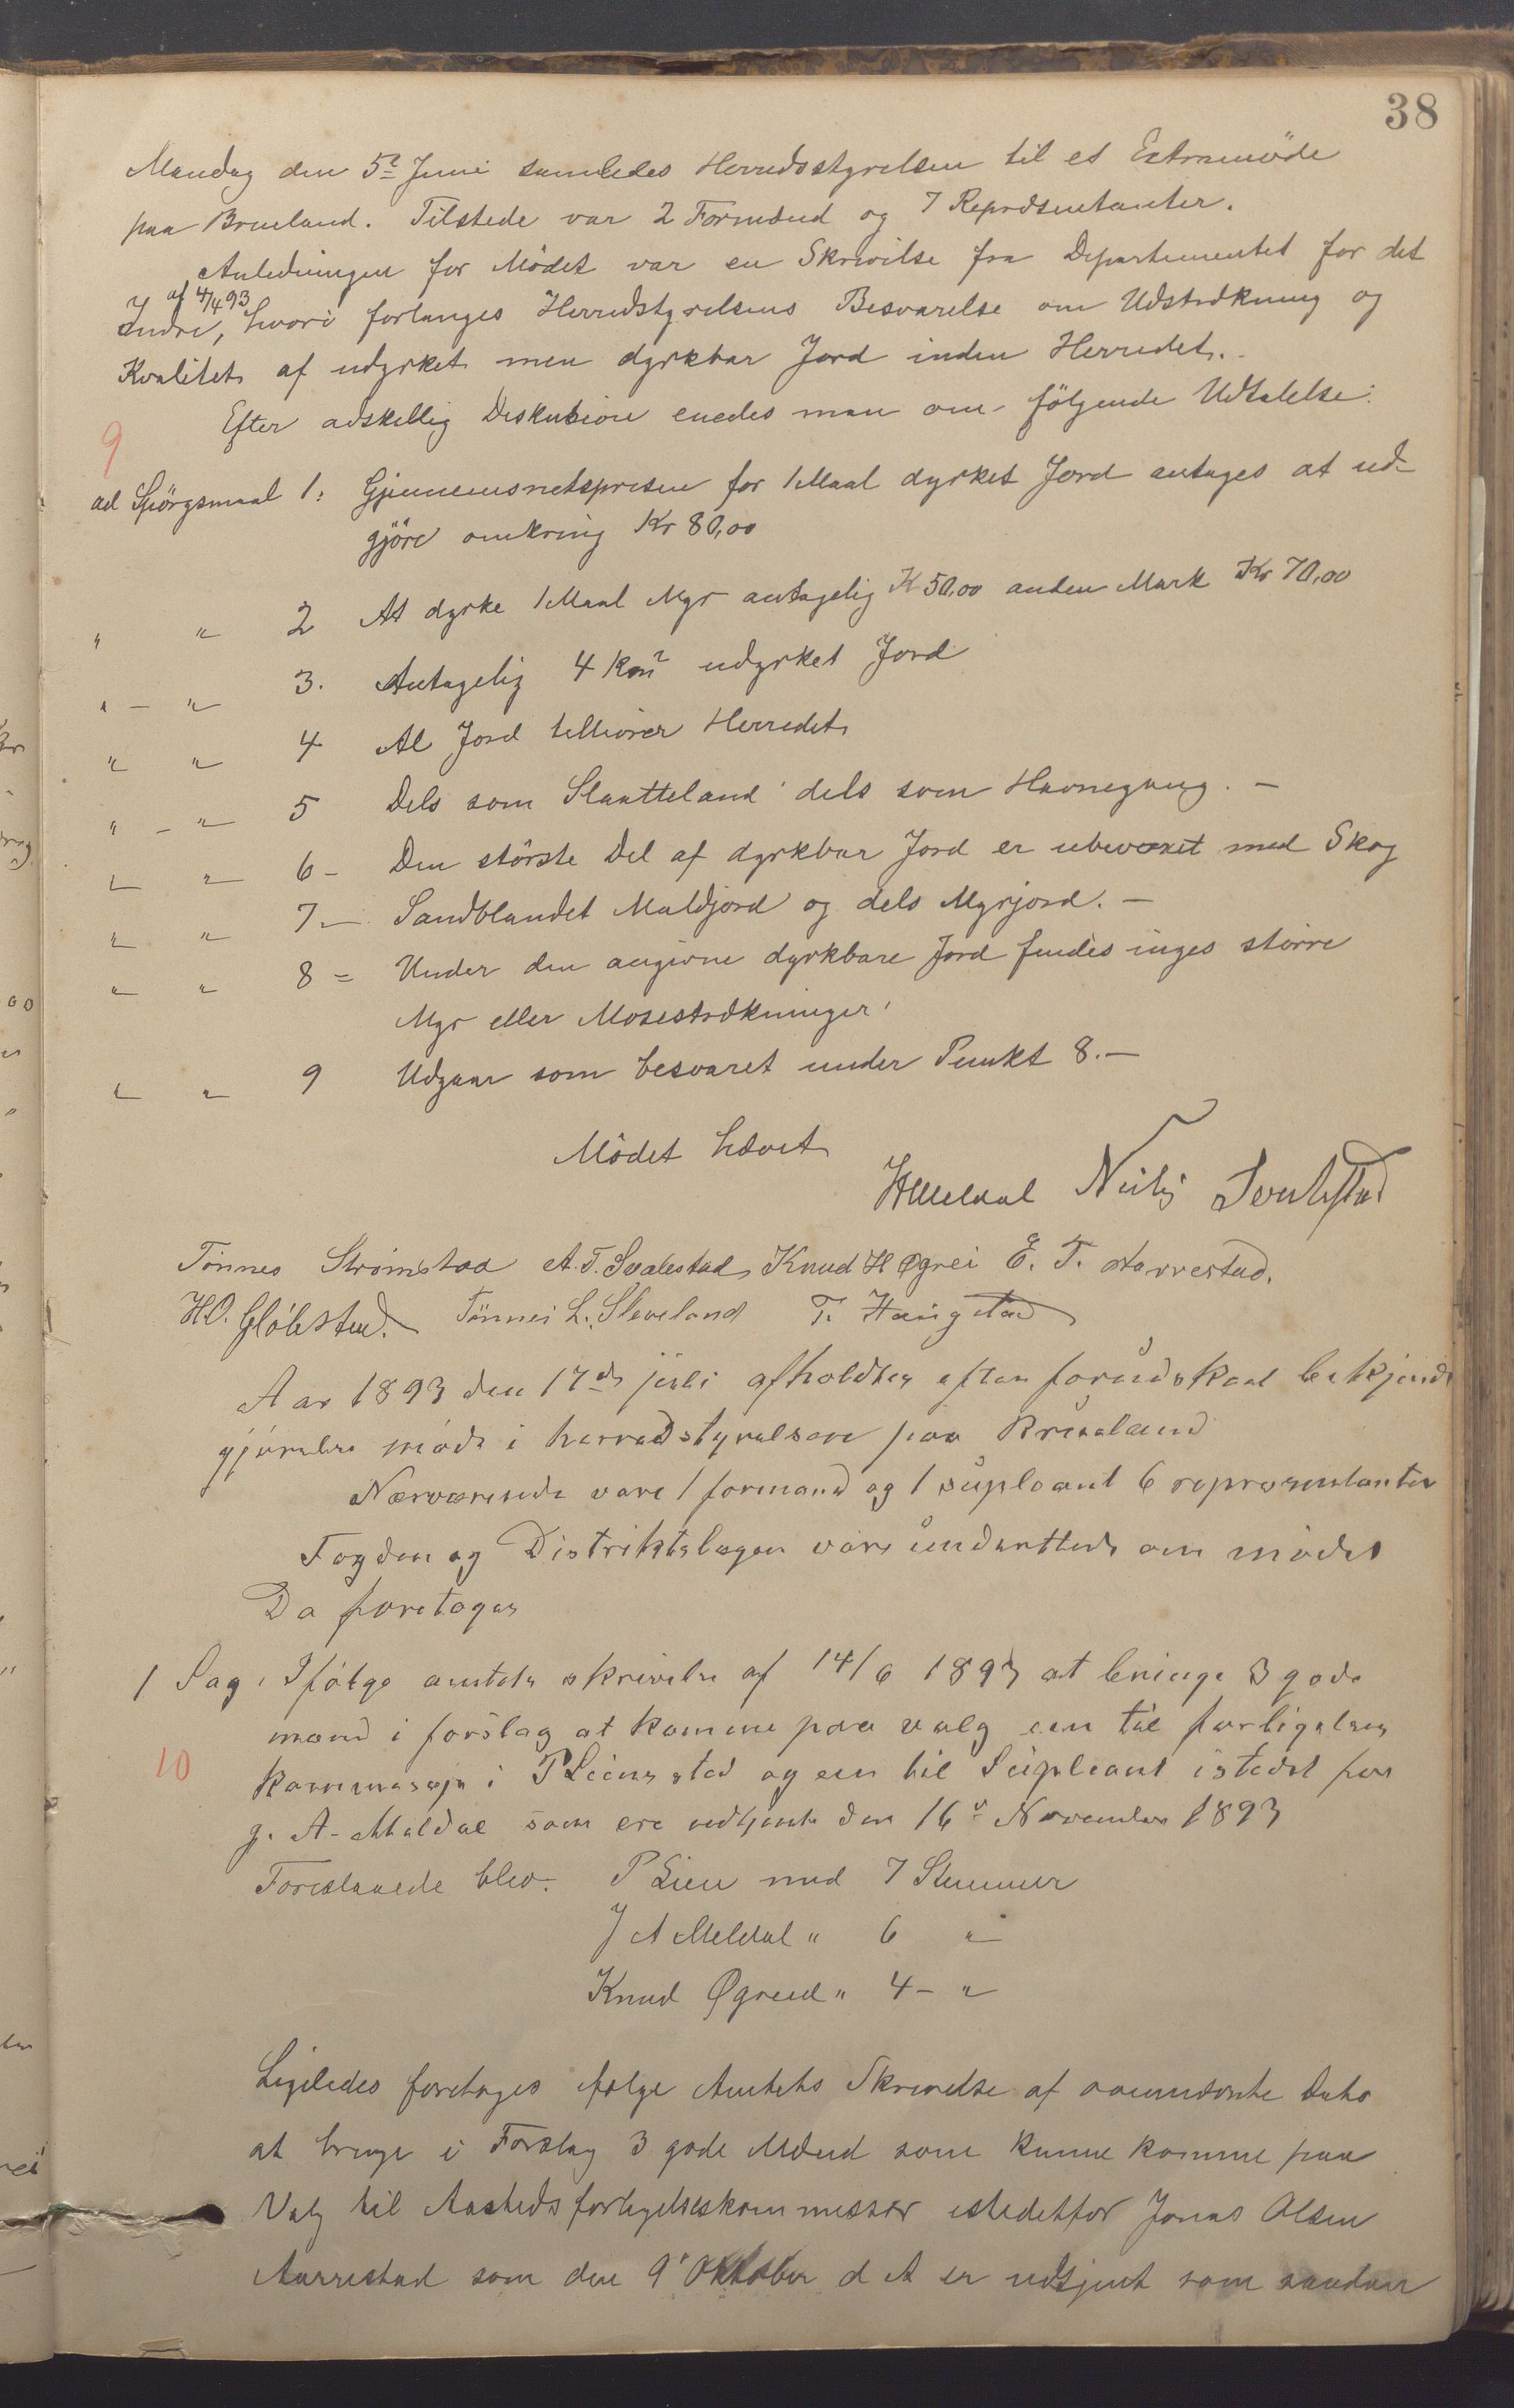 38
Mandag den 5te Juni samledes Herredsstyrelsen til et Extramöde
paa Brueland. Tilstede var 2 Formænd og 7 Repræsentanter.
Anledningen for Mödet var en Skrivelse fra Departementet for det
af 4/4 93
Indre, hvori forlanges Herredstyrelsens Besvarelse om Udstrækning og
Kvalitet af udyrket men dyrkbar Jord inden Herredet.
Efter adskellig Diskusion enedes man om fölgende Udtalelse:
9
ad Spörgsmaal 1: Gjennemsnetsprisen for 1 Maal dyrket Jord antages at ud-
gjöre omkring Kr 80,00
" " 2 At dyrke 1 Maal Myr antagelig K 50,00 anden Mark Kr 70,00
" - " 3. Antagelig 4 Km² udyrket Jord
" " 4 Al Jord tilhörer Herredet
" - " 5 Dels som Slaatteland dels som Havnegang. -
" " 6 - Den störste Del af dyrkbar Jord er ubevoxet med Skog
" " 7. - Sandblandet Muldjord og dels Myrjord. -
" " 8 = Under den angivne dyrkbare Jord findes inges större
Myr eller Mosestrækninger
" " 9 Udgaar som besvaret under Punkt 8. -
Mödet hævet
Tönnes Strömstad A. T. Svalestad Knud H Øgrei E. T. Aarrestad.
H. O. Tönnes L. Sleveland T. Haugstad
Aar 1893 den 17de juli afholdtes efter forudskeet bekjendt
gjörelse möde i herredstyrelsen paa Brueland
Nærværende vare 1 formand og 1 supleant 6 repræsentanter
Fogden og Distriktslægen vare underettede om mödet
Da foretoges
1 Sag. Ifölge amtets skrivelse af 14/6 1893 at bringe 3 gode
mænd i forslag at komme paa valg een til forligelses
10
kommissjn i P Liens sted og een til Supleant istedet for
J. A. Meldal som ere udtjente den 16de November 1893
Foreslaaede blev. P Lien med 7 Stemmer
J A Meldal " 6 "
Knud Øgreid " 4 - "
Ligeledes foretoges ifølge Amtets Skrivelse af samme Dato
at bringe i Forslag 3 gode Mænd som kunne komme paa
Valg til Aastedsforligelseskommissær istedetfor Jonas Olsen
Aarrestad som den 9de Oktober d A er udtjent som saadan